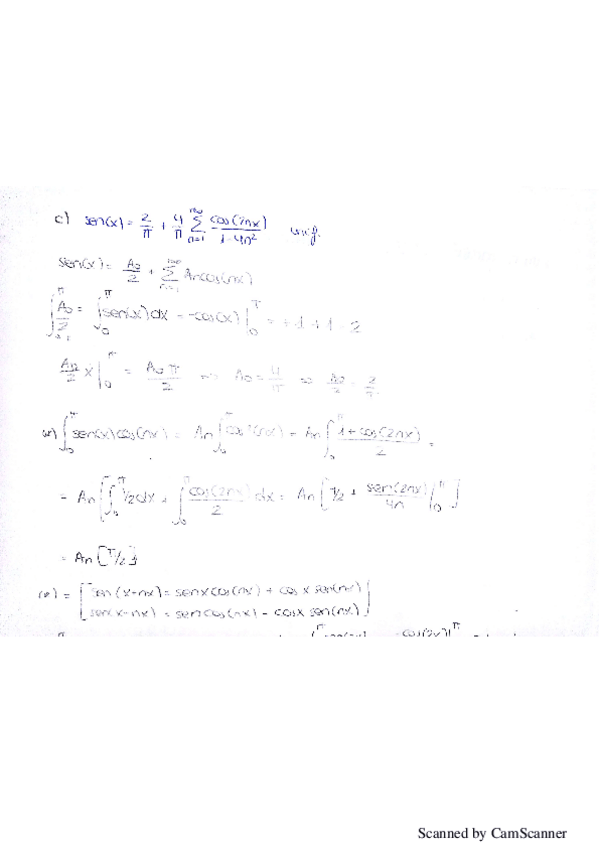 c) sen(x) = 2/π + 4/π ∑_{n=1}^{∞} cos(2nx)/(1-4n²) unif.
sen(x) = A₀/2 + ∑_{n=1}^{∞} An cos(nx)
∫_0^π A₀/2 = ∫_0^π sen(x)dx = -cos(x) |_0^π = +1+1 = 2
A₀/2 x |_0^π = A₀π/2 ⇒ A₀ = 4/π ⇒ A₀/2 = 2/π
(*) ∫_0^π sen(x)cos(nx) = An ∫_0^π cos²(nx) = An ∫_0^π (1+cos(2nx))/2 =
= An [∫_0^π 1/2 dx + ∫_0^π cos(2nx)/2 dx = An [π/2 + sen(2nx)/4n |_0^π]
= An [π/2]
(*) = [sen(x-nx) = senx cos(nx) + cos x sen(nx)
sen(x-nx) = sen cos(nx) - cosx sen(nx)]
Scanned by CamScanner